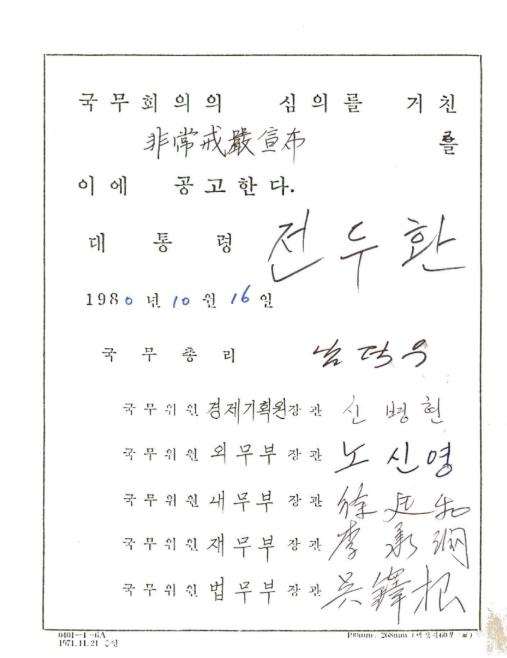 국무회의의 심의를 거친
非常戒嚴宣布 를
이에 공고한다.
대통령 전두환
1980년 10월 16일
국무총리 남덕우
국무위원 경제기획원장관 신병현
국무위원 외무부장관 노신영
국무위원 내무부장관 徐廷和
국무위원 재무부장관 李承潤
국무위원 법무부장관 吳鐸根
0401-1-6A
1971.11.21 승인
190mm×268mm